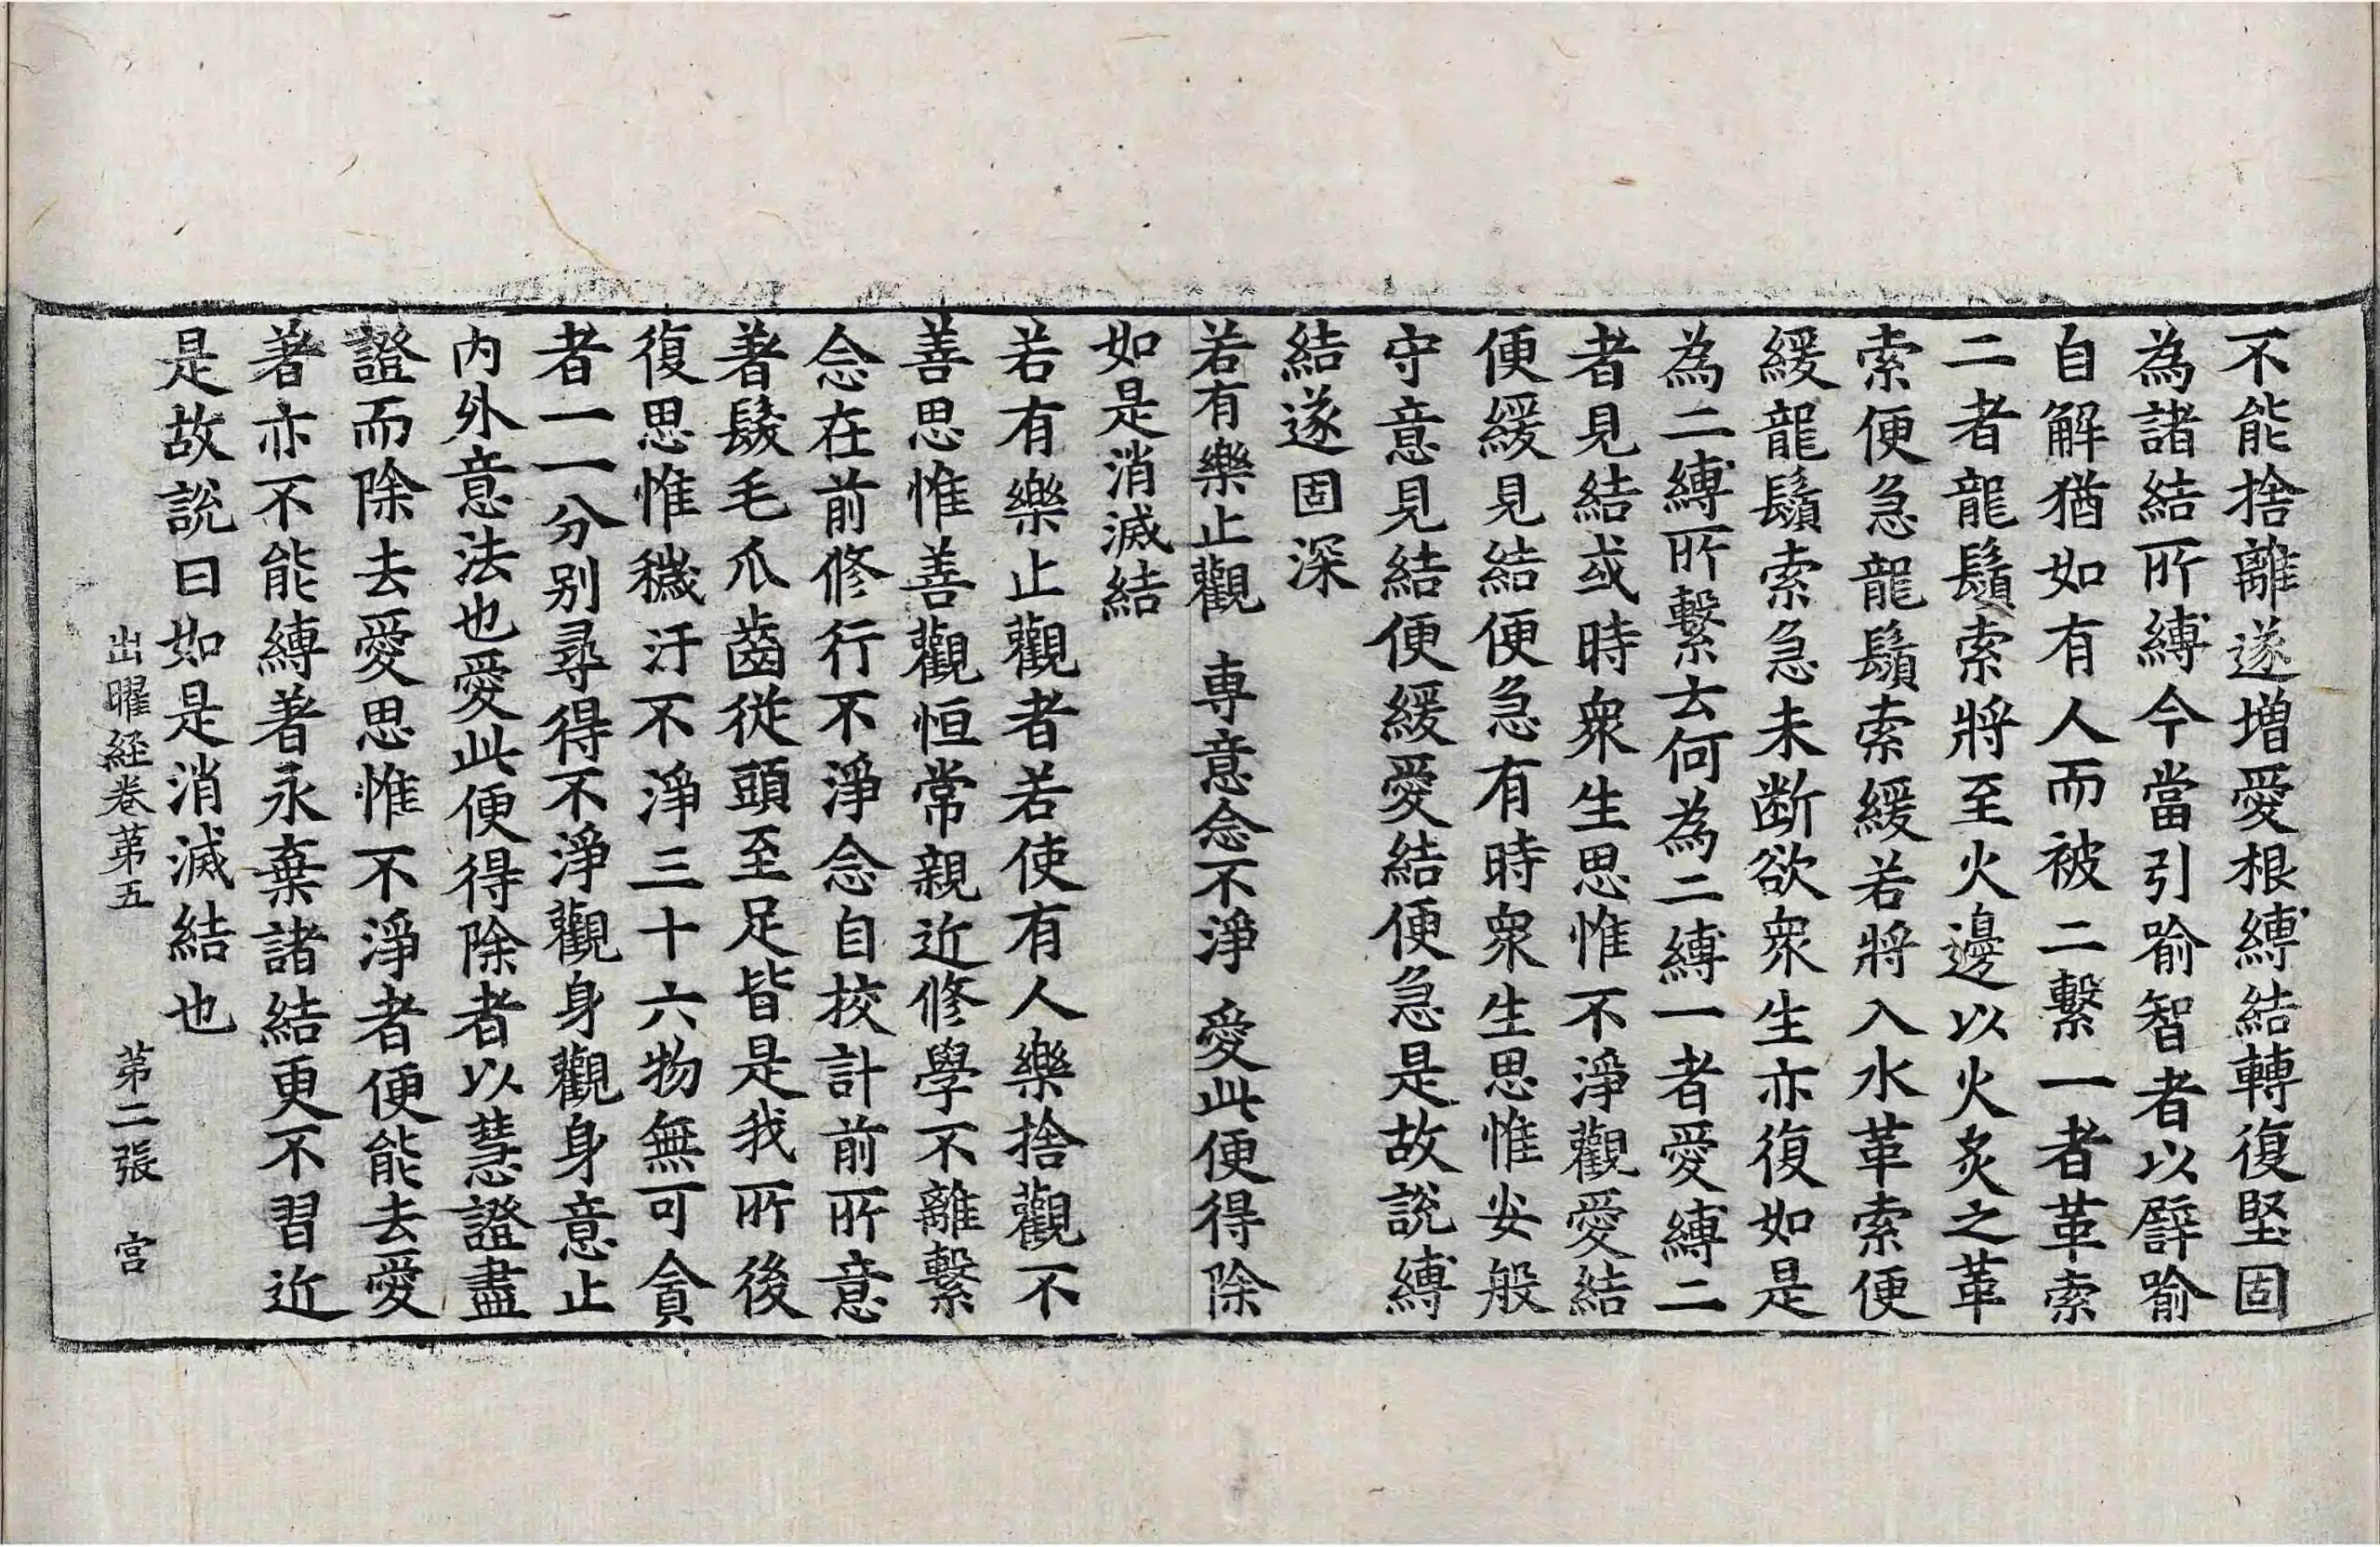 不能捨離遂增愛根縛結轉復堅固
為諸結所縛今當引喻智者以譬喻
自解猶如有人而被二繫一者革索
二者龍鬚索將至火邊以火炙之革
索便急龍鬚索緩若將入水革索便
緩龍鬚索急未断欲衆生亦復如是
為二縛所繫云何為二縛一者愛縛二
者見結或時衆生思惟不淨觀愛結
便緩見結便急有時衆生思惟安般
守意見結便緩愛結便急是故說縛
結遂固深
若有樂止觀　専意念不淨　愛此便得除
如是消滅結
若有樂止觀者若使有人樂捨觀不
善思惟善觀恒常親近修學不離繫
念在前修行不淨念自挍計前所意
著髮毛爪齒從頭至足皆是我所後
復思惟穢汙不淨三十六物無可貪
者一一分别尋得不淨觀身觀身意止
内外意法也愛此便得除者以慧證盡
證而除去愛思惟不淨者便能去愛
著亦不能縛著永棄諸結更不習近
是故說曰如是消滅結也
出曜経卷苐五　苐二張　宫